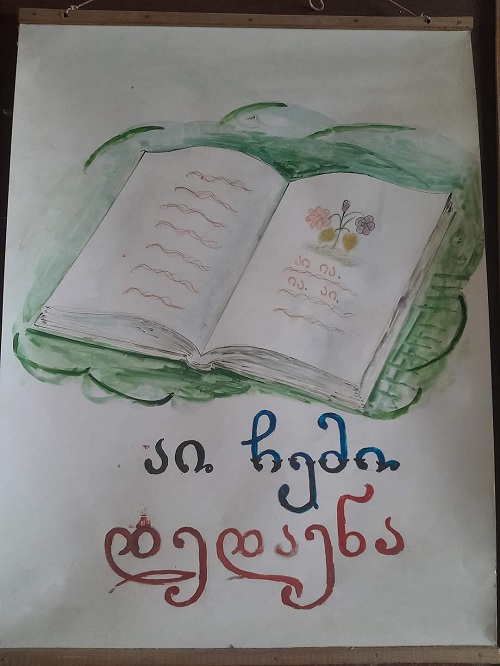 აი ია.
ია. აი.
აი ჩემი
დედაენა